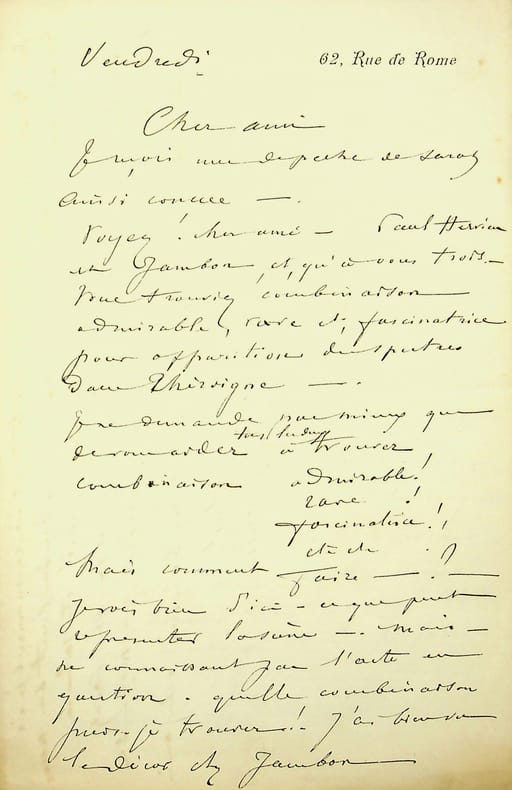 Vendredi
62, Rue de Rome
Cher ami
Je reçois une depeche de Sarah
ainsi concue —.
Voyez ! cher ami — Paul Hervieu
et Jambon, et, qu'à vous trois —
vous trouviez combinaison
admirable, rare et, fascinatrice
pour apparitions du spectres
Dans Théroigne —.
Je ne demande pas mieux que
de vous aider tous les deux à trouver
combinaison admirable !
rare !
fascinatrice !
etc etc . )
Mais comment faire — ? —
Je vois bien d'ici — ce que peut
représenter la scène —. Mais —
ne connaissant pas l'acte en
question . quelle combinaison
puis-je trouver ! J'ai bien vu
le décor chez Jambon —